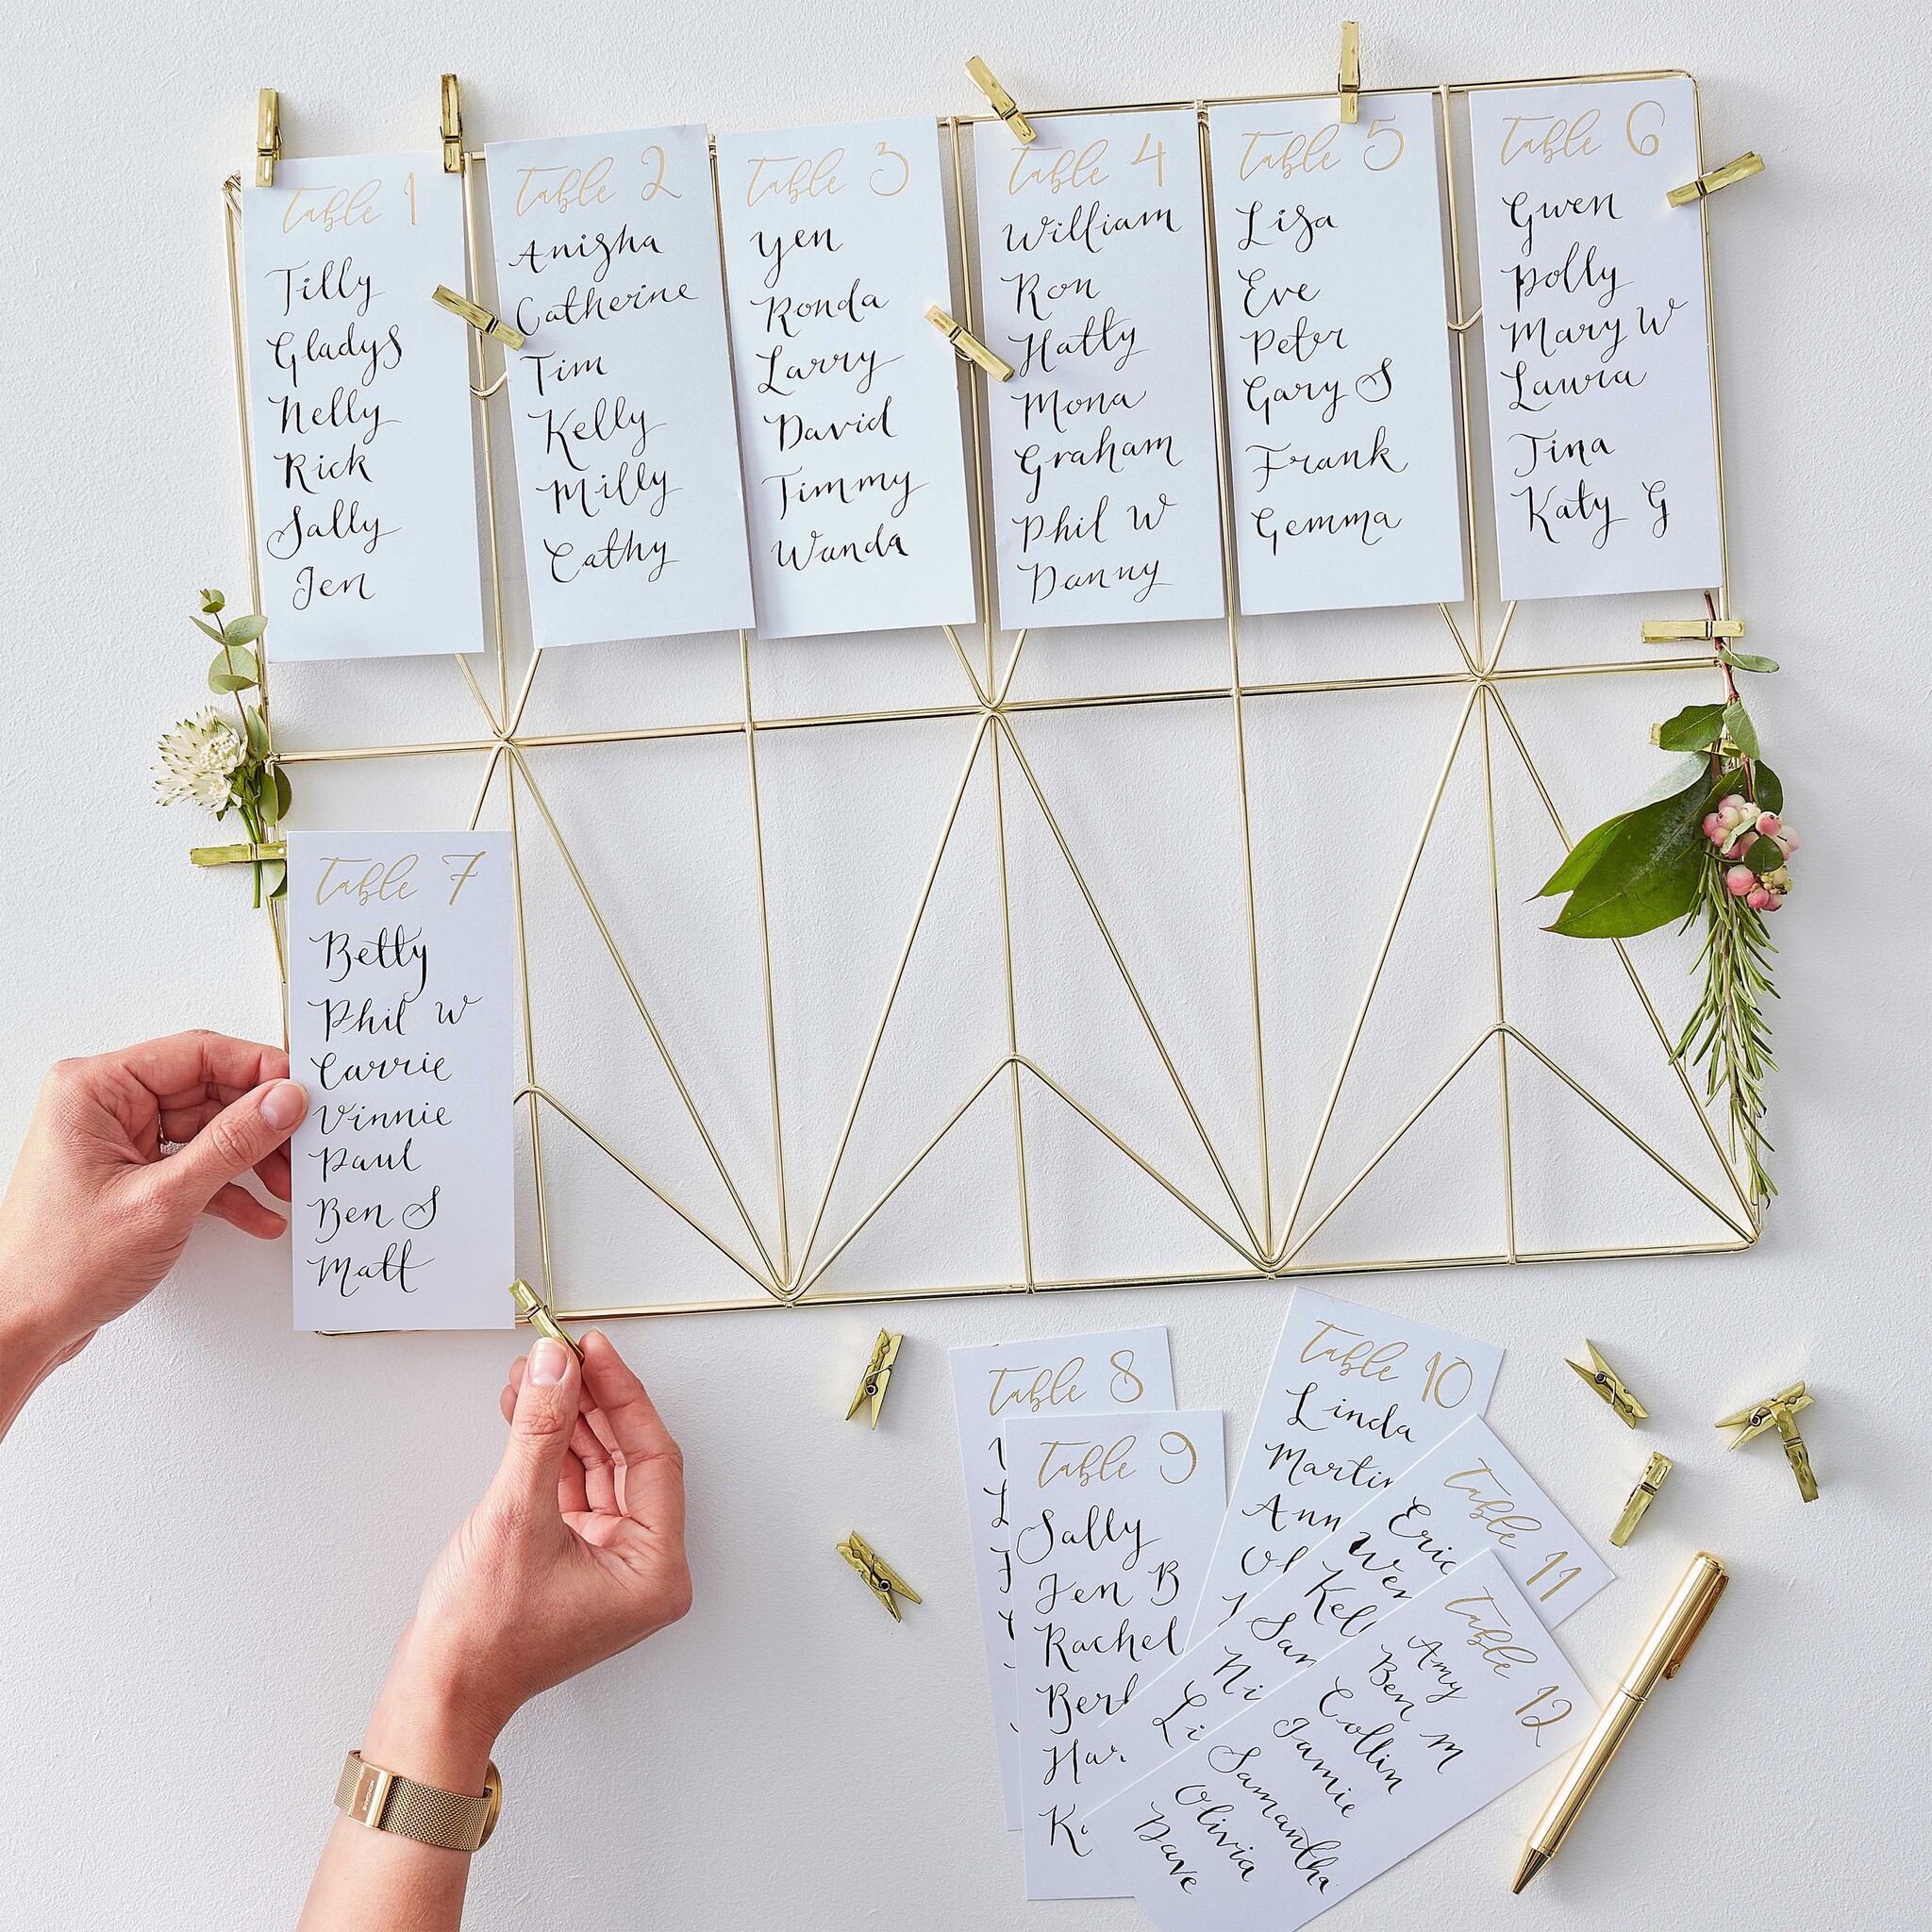 Table 1
Tilly
Gladys
Nelly
Rick
Sally
Jen
Table 2
Anisha
Catherine
Tim
Kelly
Milly
Cathy
Table 3
Yen
Ronda
Larry
David
Timmy
Wanda
Table 4
William
Ron
Hatty
Mona
Graham
Phil W
Danny
Table 5
Lisa
Eve
Peter
Gary S
Frank
Gemma
Table 6
Gwen
Polly
Mary W
Laura
Tina
Katy G
Table 7
Betty
Phil W
Carrie
Vinnie
Paul
Ben S
Matt
Table 8
Table 9
Sally
Jen B
Rachel
Table 10
Linda
Martin
Table 11
Eric
Table 12
Amy
Ben M
Collin
Jamie
Samantha
Olivia
Dave